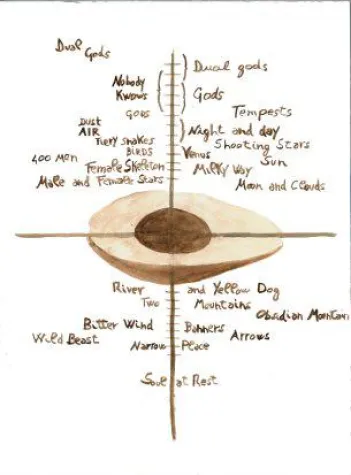 Dual Gods
Dual gods
Nobody Knows
Gods
GODS
Tempests
DUST
AIR
Night and day
Fiery snakes
Shooting Stars
BIRDS
Venus
Sun
400 men
Female Skeleton
Milky Way
Male and Female Stars
Moon and Clouds
River and Yellow Dog
Two Mountains
Obsidian Mountain
Bitter Wind
Banners
Wild Beast
Arrows
Narrow Place
Soul at Rest